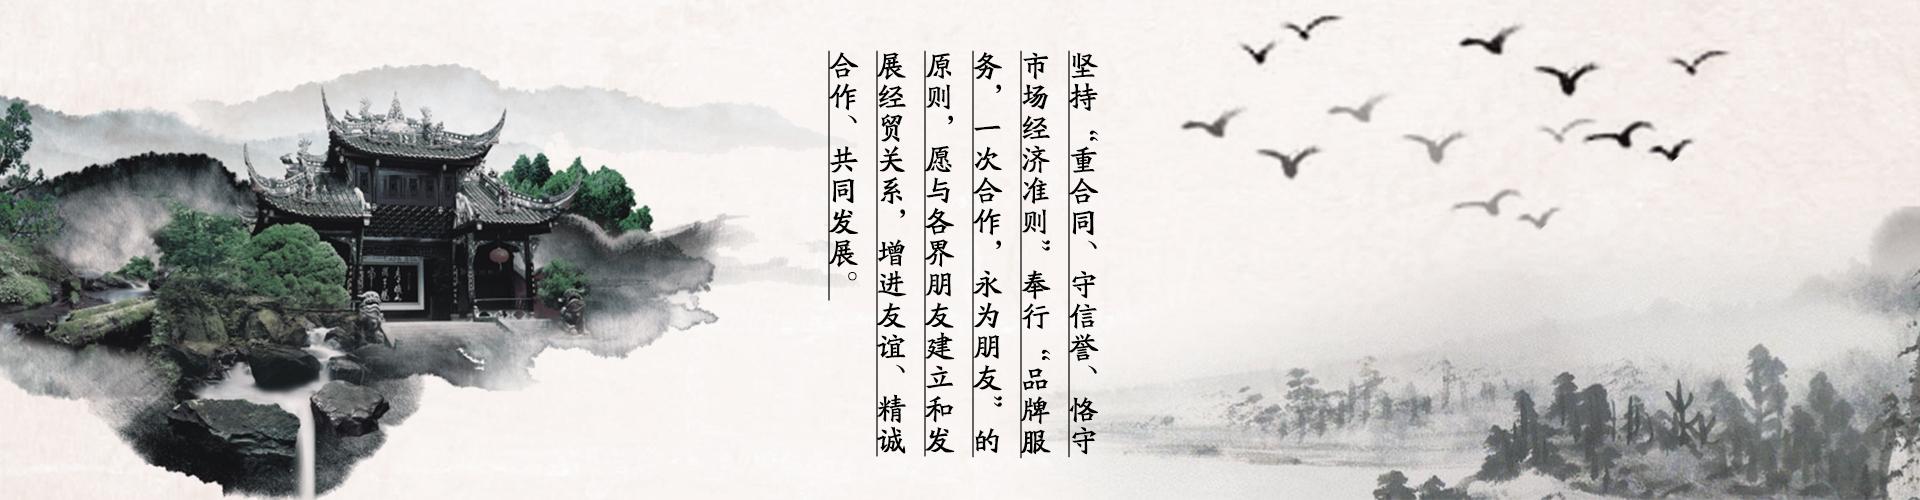 坚持“重合同、守信誉、恪守
市场经济准则”奉行“品牌服
务，一次合作，永为朋友”的
原则，愿与各界朋友建立和发
展经贸关系，增进友谊、精诚
合作、共同发展。